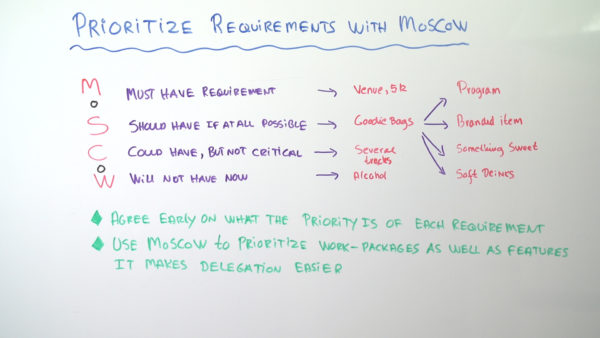 PRIORITIZE REQUIREMENTS WITH MOSCOW
M MUST HAVE REQUIREMENT → Venue, 5k Program
o
S SHOULD HAVE IF AT ALL POSSIBLE → Goodie Bags Branded item
C COULD HAVE, BUT NOT CRITICAL → Several tracks Something Sweet
o
W WILL NOT HAVE NOW → Alcohol Soft Drinks
♦ AGREE EARLY ON WHAT THE PRIORITY IS OF EACH REQUIREMENT
♦ USE MOSCOW TO PRIORITIZE WORK-PACKAGES AS WELL AS FEATURES
IT MAKES DELEGATION EASIER